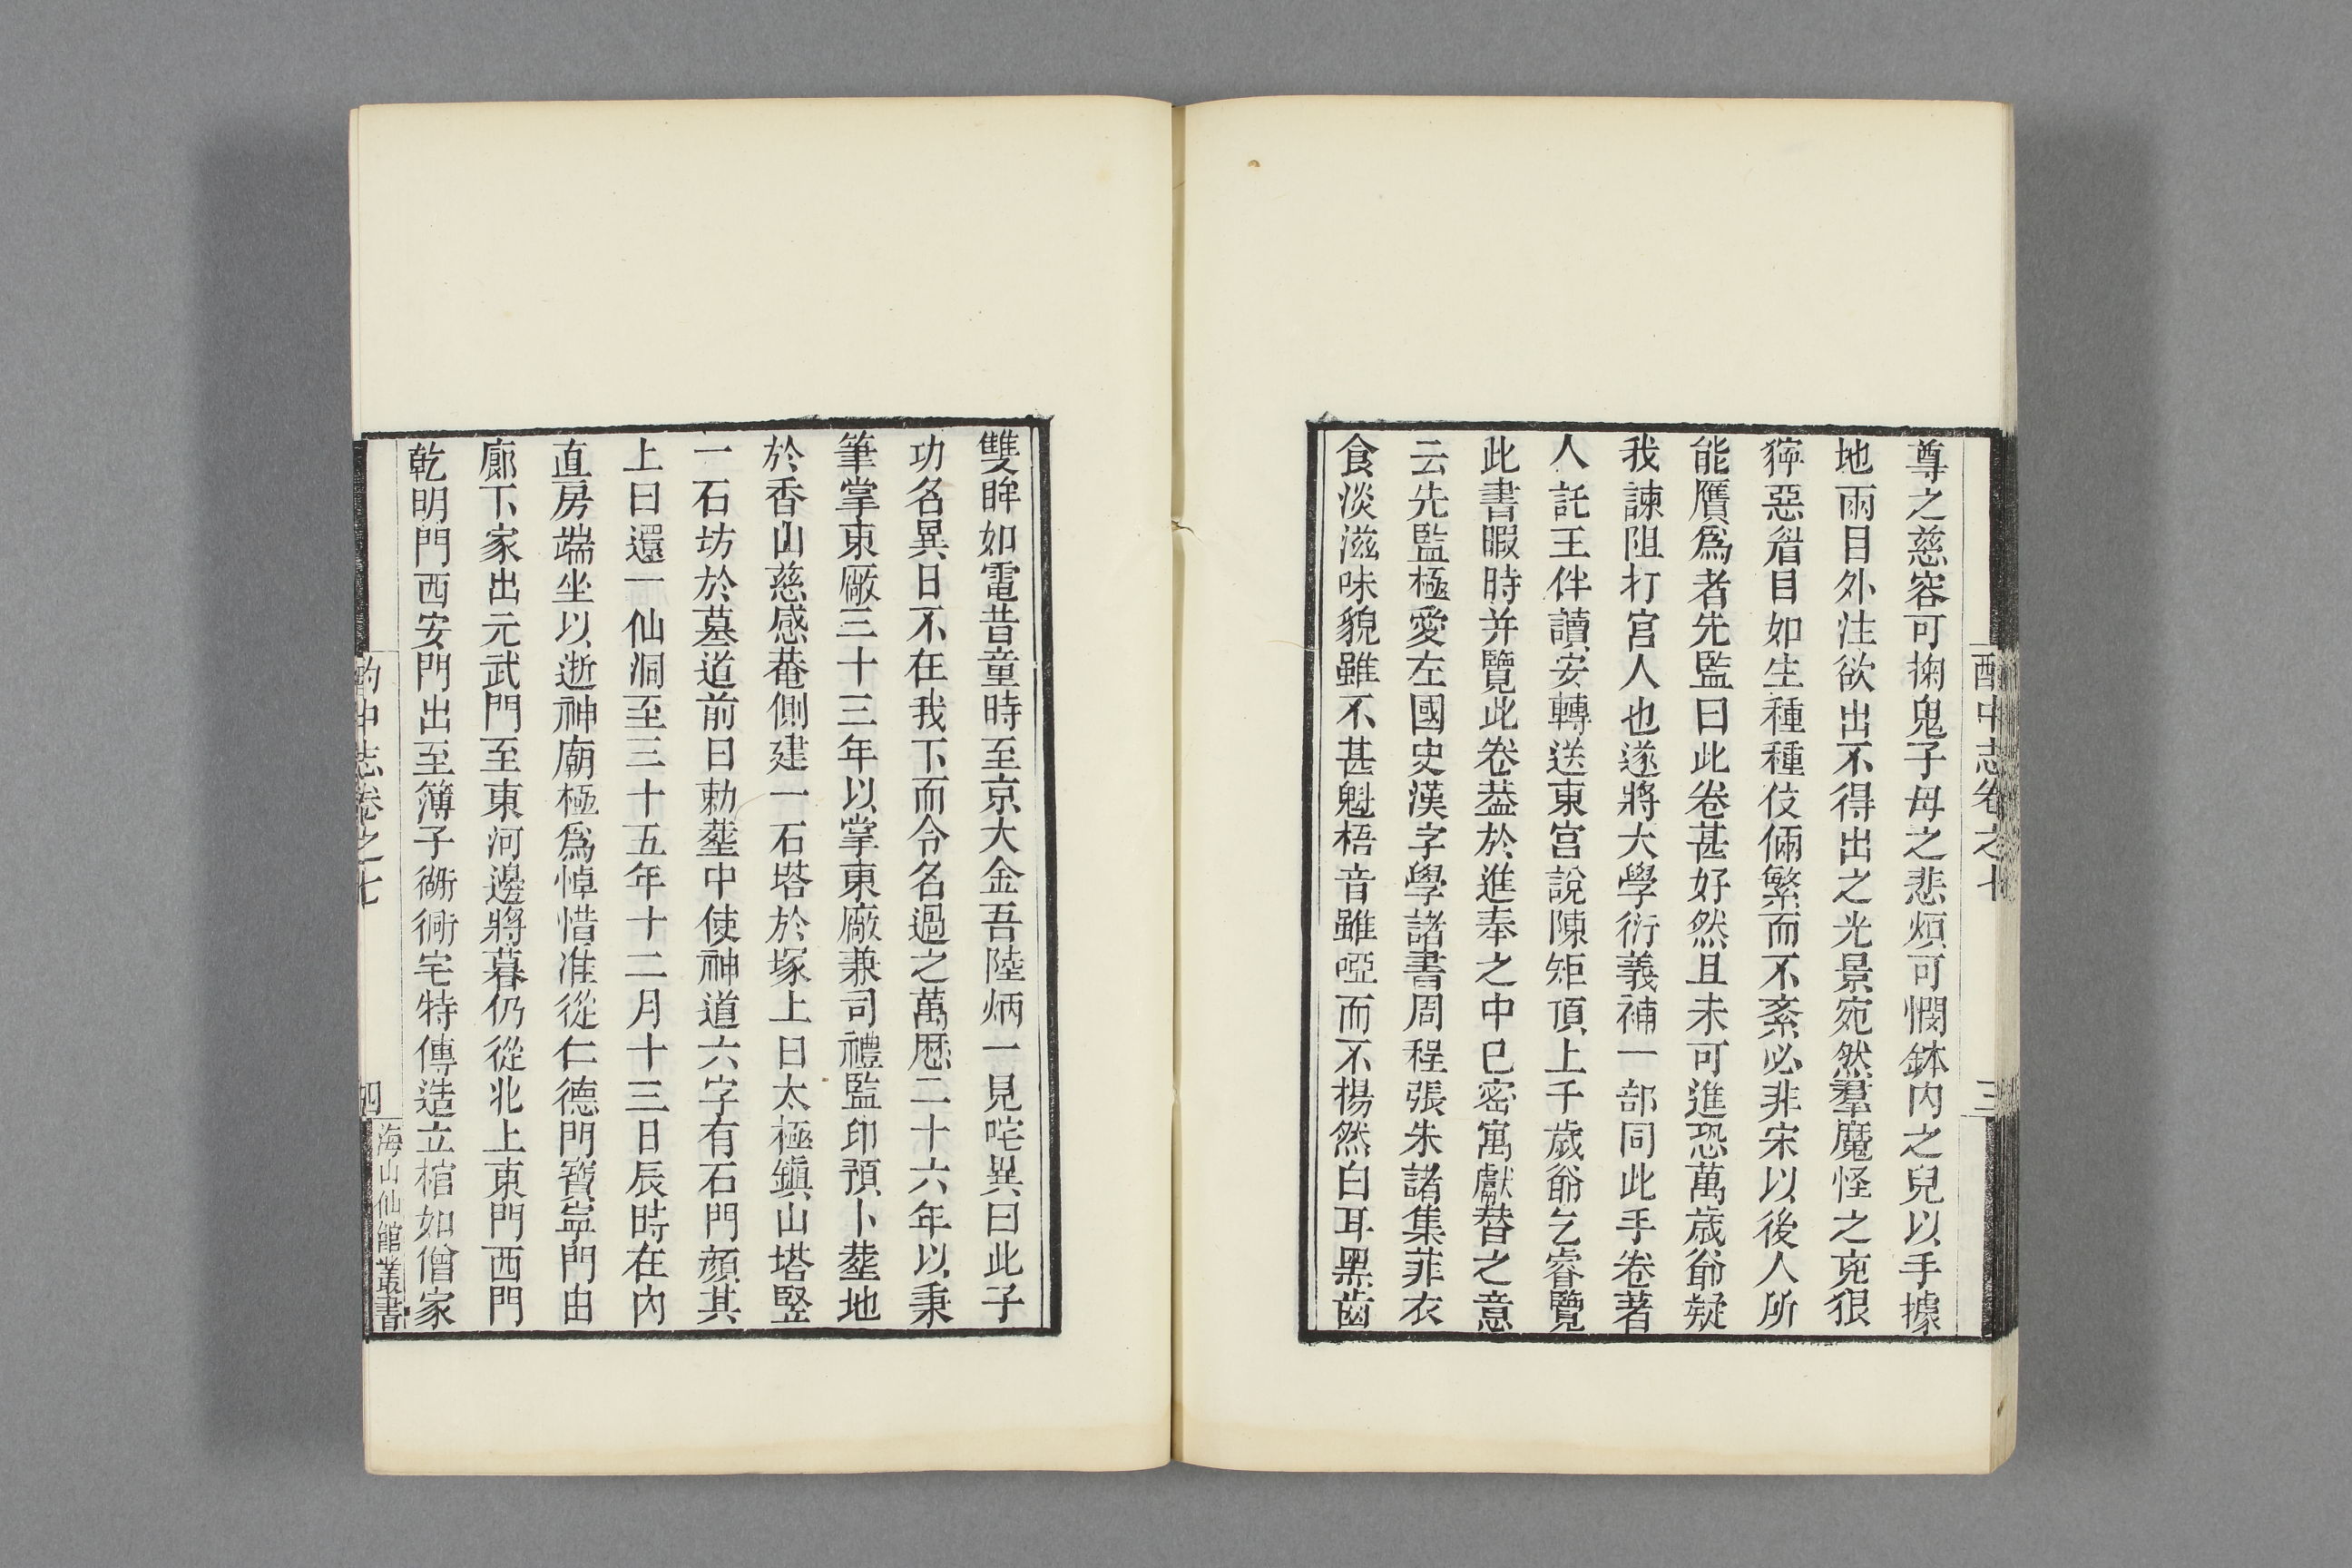 酌中志卷之七
三
尊之慈容可掬鬼子母之悲煩可憫鉢内之兒以手據
地兩目外注欲出不得出之光景宛然羣魔怪之兇狠
獰惡眉目如生種種伎倆繁而不紊必非宋以後人所
能贋爲者先監曰此卷甚好然且未可進恐萬歲爺疑
我諫阻打官人也遂將大學衍義補一部同此手卷著
人託王伴讀安轉送東宮說陳矩頂上千歲爺乞睿覽
此書暇時并覽此卷葢於進奉之中已密寓獻替之意
云先監極愛左國史漢字學諸書周程張朱諸集菲衣
食淡滋味貌雖不甚魁梧音雖啞而不揚然白耳黑齒
雙眸如電昔童時至京大金吾陸炳一見咤異曰此子
功名異日不在我下而令名過之萬厯二十六年以秉
筆掌東厰三十三年以掌東厰兼司禮監印預卜塟地
於香山慈感菴側建一石塔於塚上曰太極鎭山塔竪
一石坊於墓道前曰勅塟中使神道六字有石門顔其
上曰還一仙洞至三十五年十二月十三日辰時在内
直房端坐以逝神廟極爲悼惜准從仁德門寶寧門由
廊下家出元武門至東河邊將暮仍從北上東門西門
乾明門西安門出至簿子衚衕宅特傳造立棺如僧家
酌中志卷之七
四
海山仙館叢書